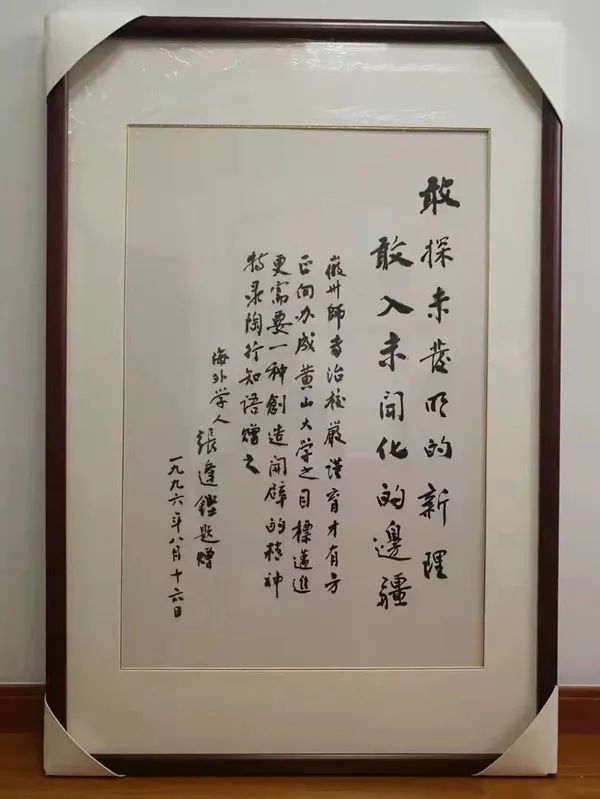 敢探未發明的新理
敢入未開化的邊疆
徽州師专治校嚴谨育才有方
正向办成黄山大学之目標邁進
更需要一种創造開辟的精神
特录陶行知语赠之
海外学人 張逢鏗题赠
一九九六年八月十六日